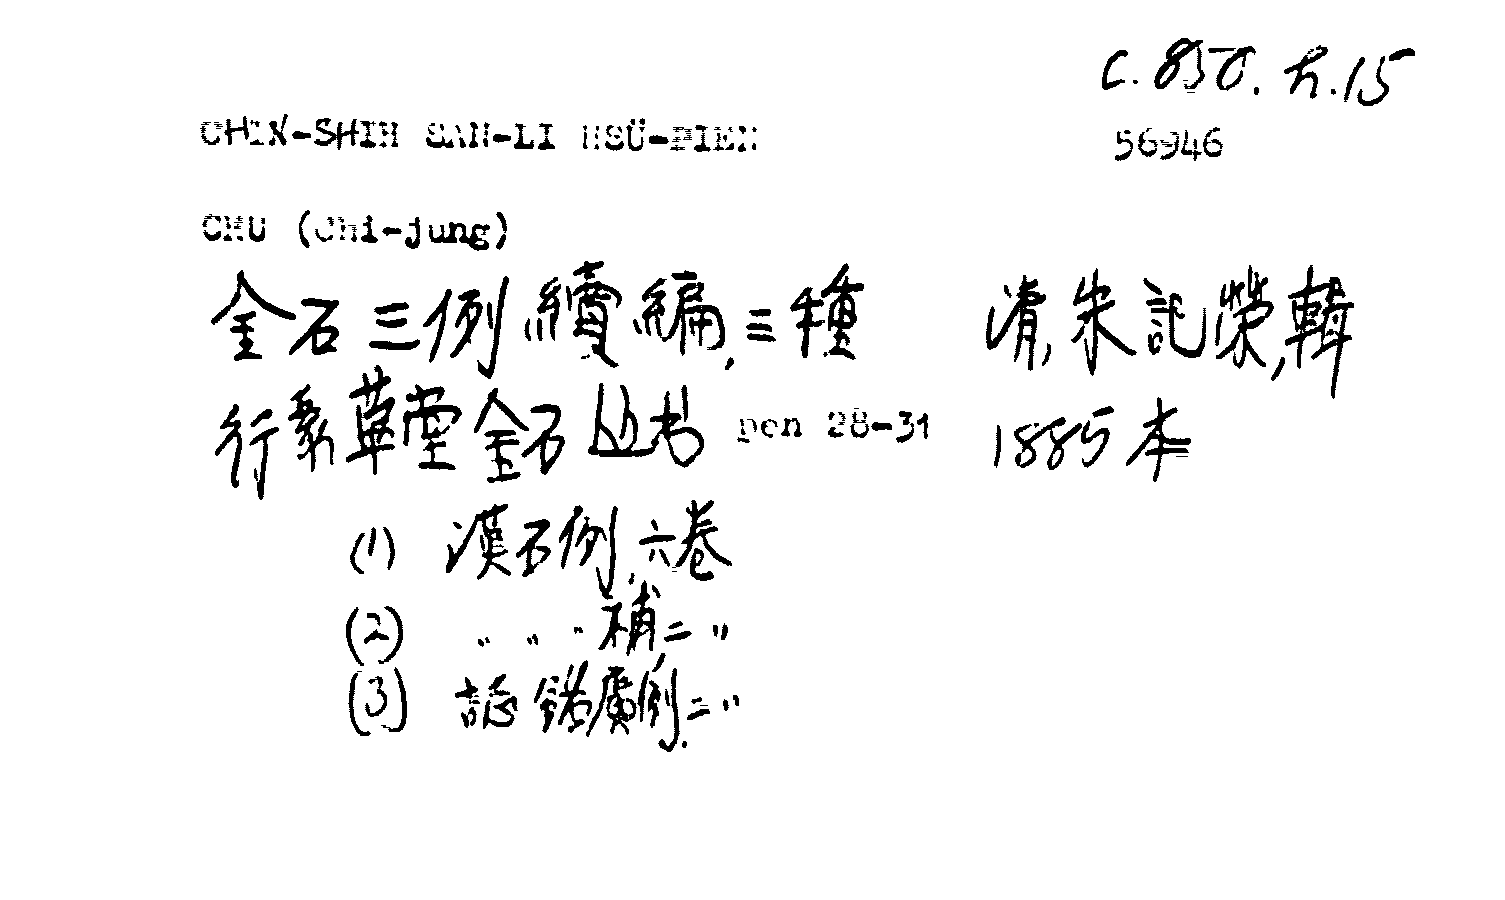 C. 850. h.15
CHIN-SHIH SAN-LI HSÜ-PIEN
56946
CHU (Chi-jung)
金石三例續編,三種 清,朱記榮,輯
行素草堂金石丛书 pen 28-31 1885本
(1) 漢石例,六卷
(2) 〃 〃 〃 補二〃
(3) 誌銘廣例,二〃